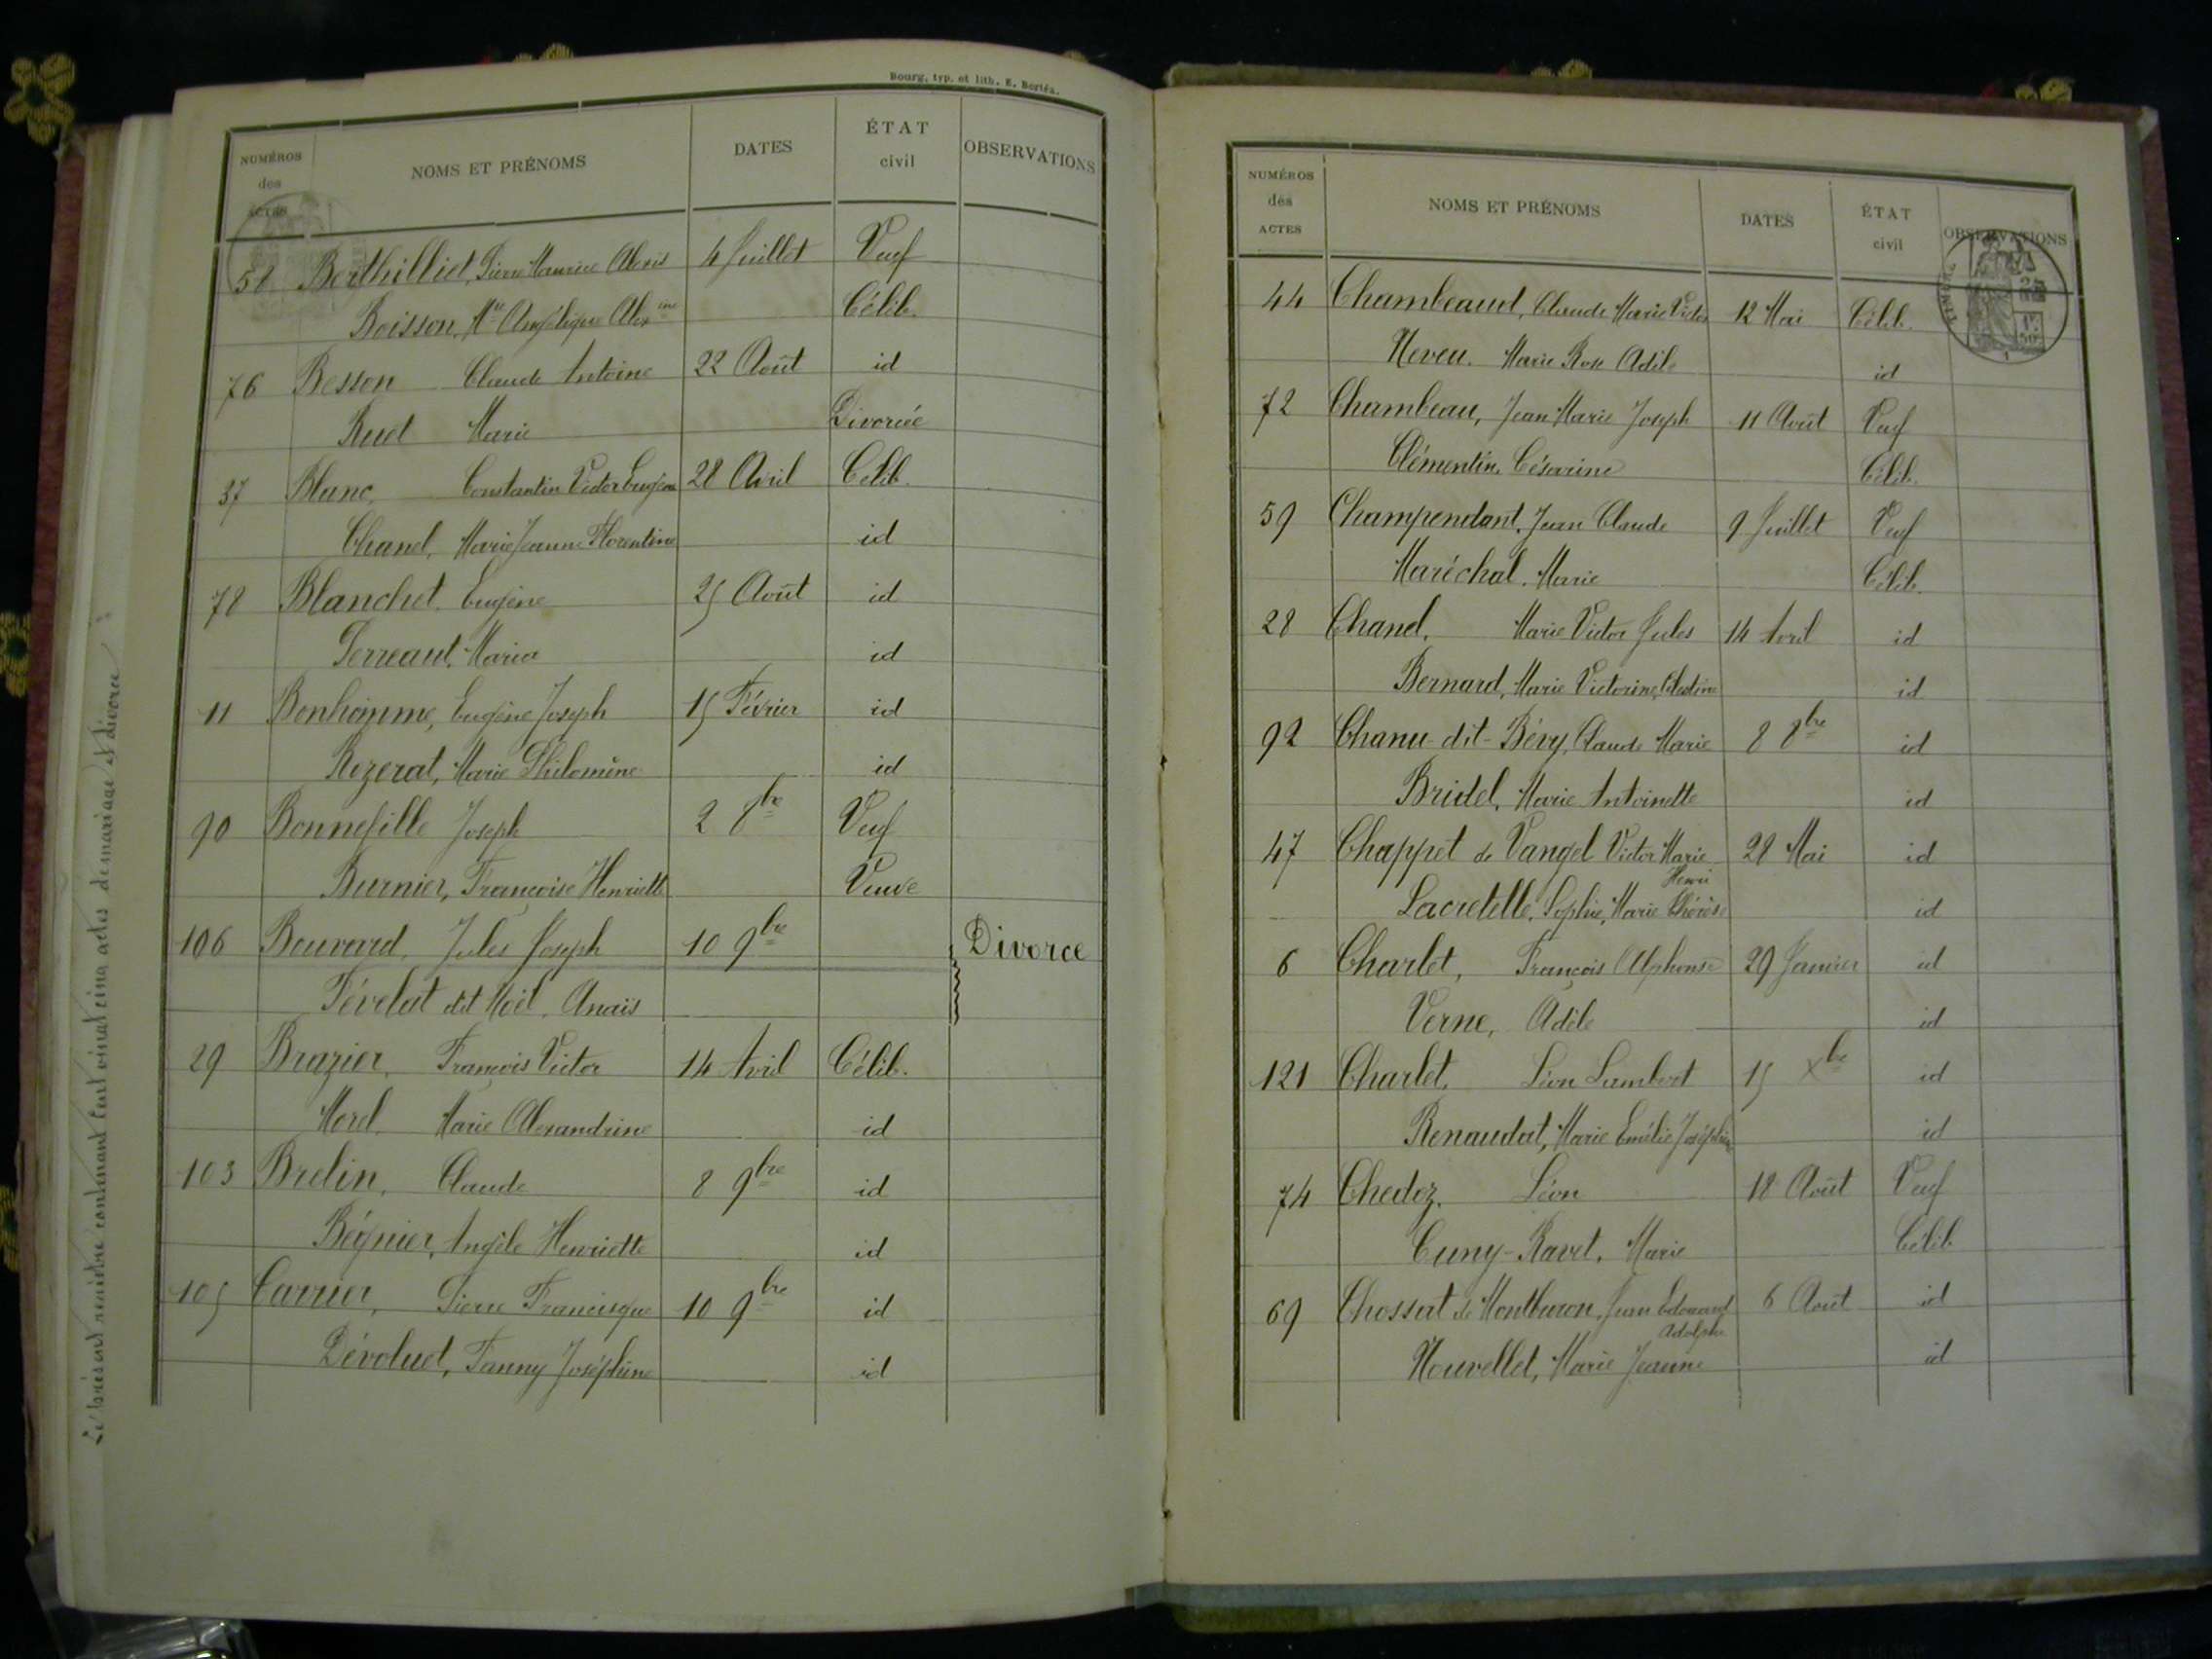 Bourg, typ. et lith. E. Bertéa.
NUMÉROS des ACTES NOMS ET PRÉNOMS DATES ÉTAT civil OBSERVATIONS
58 Berthilliet, Pierre Maurice Alexis 4 Juillet Veuf
Boisson, Mie Angélique Alexine Célib.
76 Besson Claude Antoine 22 Août id
Ruet Marie Divorcée
37 Blanc, Constantin Victor Eugène 28 Avril Célib.
Chanel, Marie Jeanne Florentine id
78 Blanchet, Eugène 25 Août id
Perreaut, Maria id
11 Bonhomme, Eugène Joseph 15 Février id
Rozerat, Marie Philomène id
90 Bonnefille Joseph 2 8bre Veuf
Burnier, Françoise Henriette Veuve
106 Bouvard, Jules Joseph 10 9bre Divorce
Févelat dit Noël, Anaïs
29 Brazier, François Victor 14 Avril Célib.
Morel, Marie Alexandrine id
103 Brelin, Claude 8 9bre id
Bégnier, Angèle Henriette id
105 Carrier, Pierre Francisque 10 9bre id
Dévoluet, Fanny Joséphine id
Le présent registre contenant cent vingt cinq actes de mariage et divorce
NUMÉROS des ACTES NOMS ET PRÉNOMS DATES ÉTAT civil OBSERVATIONS
44 Chambeaud, Claude Marie Victor 12 Mai Célib.
Neveu, Marie Rose Adèle id
72 Chambeau, Jean Marie Joseph 11 Août Veuf
Clémentin, Césarine Célib.
59 Champendant, Jean Claude 9 Juillet Veuf
Maréchal, Marie Célib.
28 Chanel, Marie Victor Jules 14 Avril id
Bernard, Marie Victorine, Célestine id
92 Chanu-dit-Bévy, Claude Marie 8 8bre id
Bridel, Marie Antoinette id
47 Chappet de Vangel Victor Marie 28 Mai id
Henri
Lacretelle, Sophie, Marie Thérèse id
6 Charlet, François Alphonse 29 Janvier id
Verne, Adèle id
121 Charlet, Léon Lambert 15 Xbre id
Renaudat, Marie Emélie Joséphine id
74 Chedez, Léon 18 Août Veuf
Cuny-Ravet, Marie Célib
69 Chossat de Montburon, Jean Edouard 6 Août id
Adolphe
Nouvellet, Marie Jeanne id